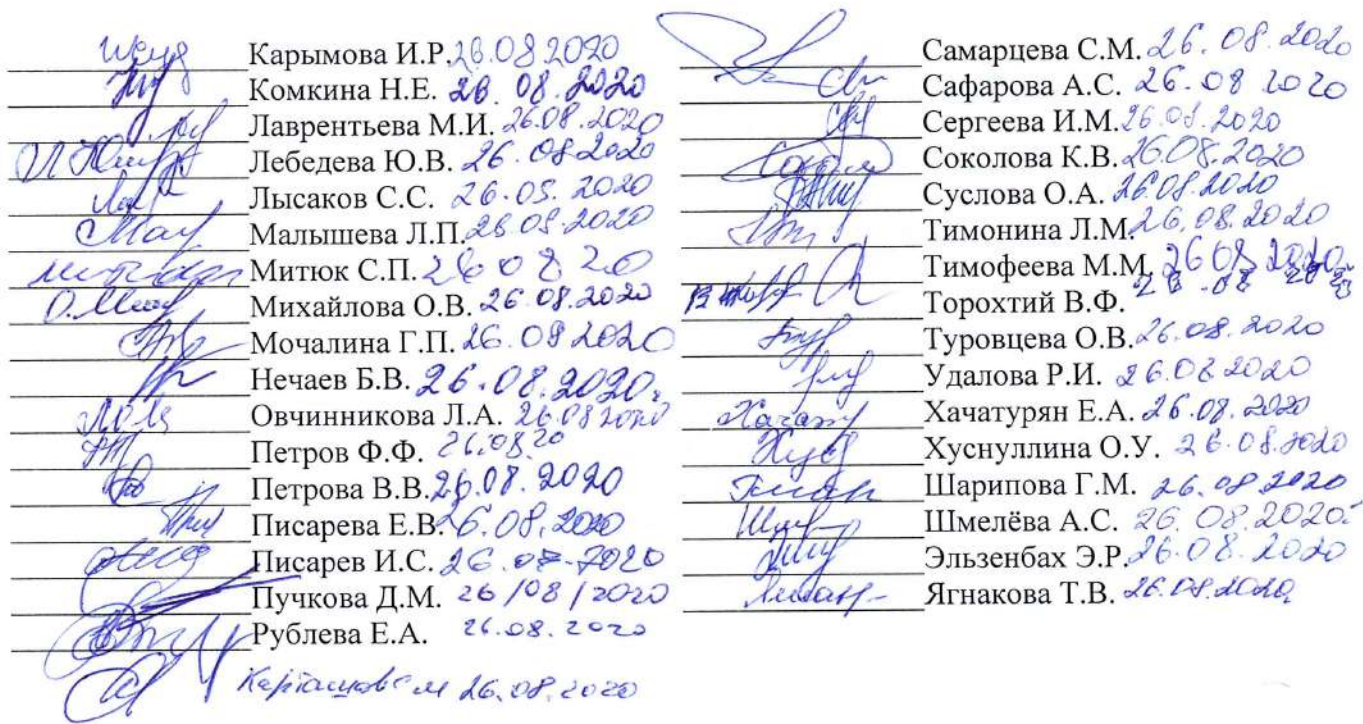 Карымова И.Р. 26.08.2020
Комкина Н.Е. 26.08.2020
Лаврентьева М.И. 26.08.2020
Лебедева Ю.В. 26.08.2020
Лысаков С.С. 26.05.2020
Малышева Л.П. 26.08.2020
Митюк С.П. 26 08 20
Михайлова О.В. 26.08.2020
Мочалина Г.П. 26.08 2020
Нечаев Б.В. 26.08.2020г
Овчинникова Л.А. 26.08 2020
Петров Ф.Ф. 26.08.20
Петрова В.В. 26.08.2020
Писарева Е.В. 26.08.2020
Писарев И.С. 26.08.2020
Пучкова Д.М. 26/08/2020
Рублева Е.А. 26.08.2020
26.08.2020
Самарцева С.М. 26.08.2020
Сафарова А.С. 26.08 2020
Сергеева И.М. 26.08.2020
Соколова К.В. 26.08.2020
Суслова О.А. 26.08.2020
Тимонина Л.М. 26.08.2020
Тимофеева М.М. 26 08 2020
Торохтий В.Ф.
Туровцева О.В. 26.08.2020
Удалова Р.И. 26.08 2020
Хачатурян Е.А. 26.08.2020
Хуснуллина О.У. 26.08.2020
Шарипова Г.М. 26.08 2020
Шмелёва А.С. 26.08.2020
Эльзенбах Э.Р. 26.08.2020
Ягнакова Т.В. 26.08.2020